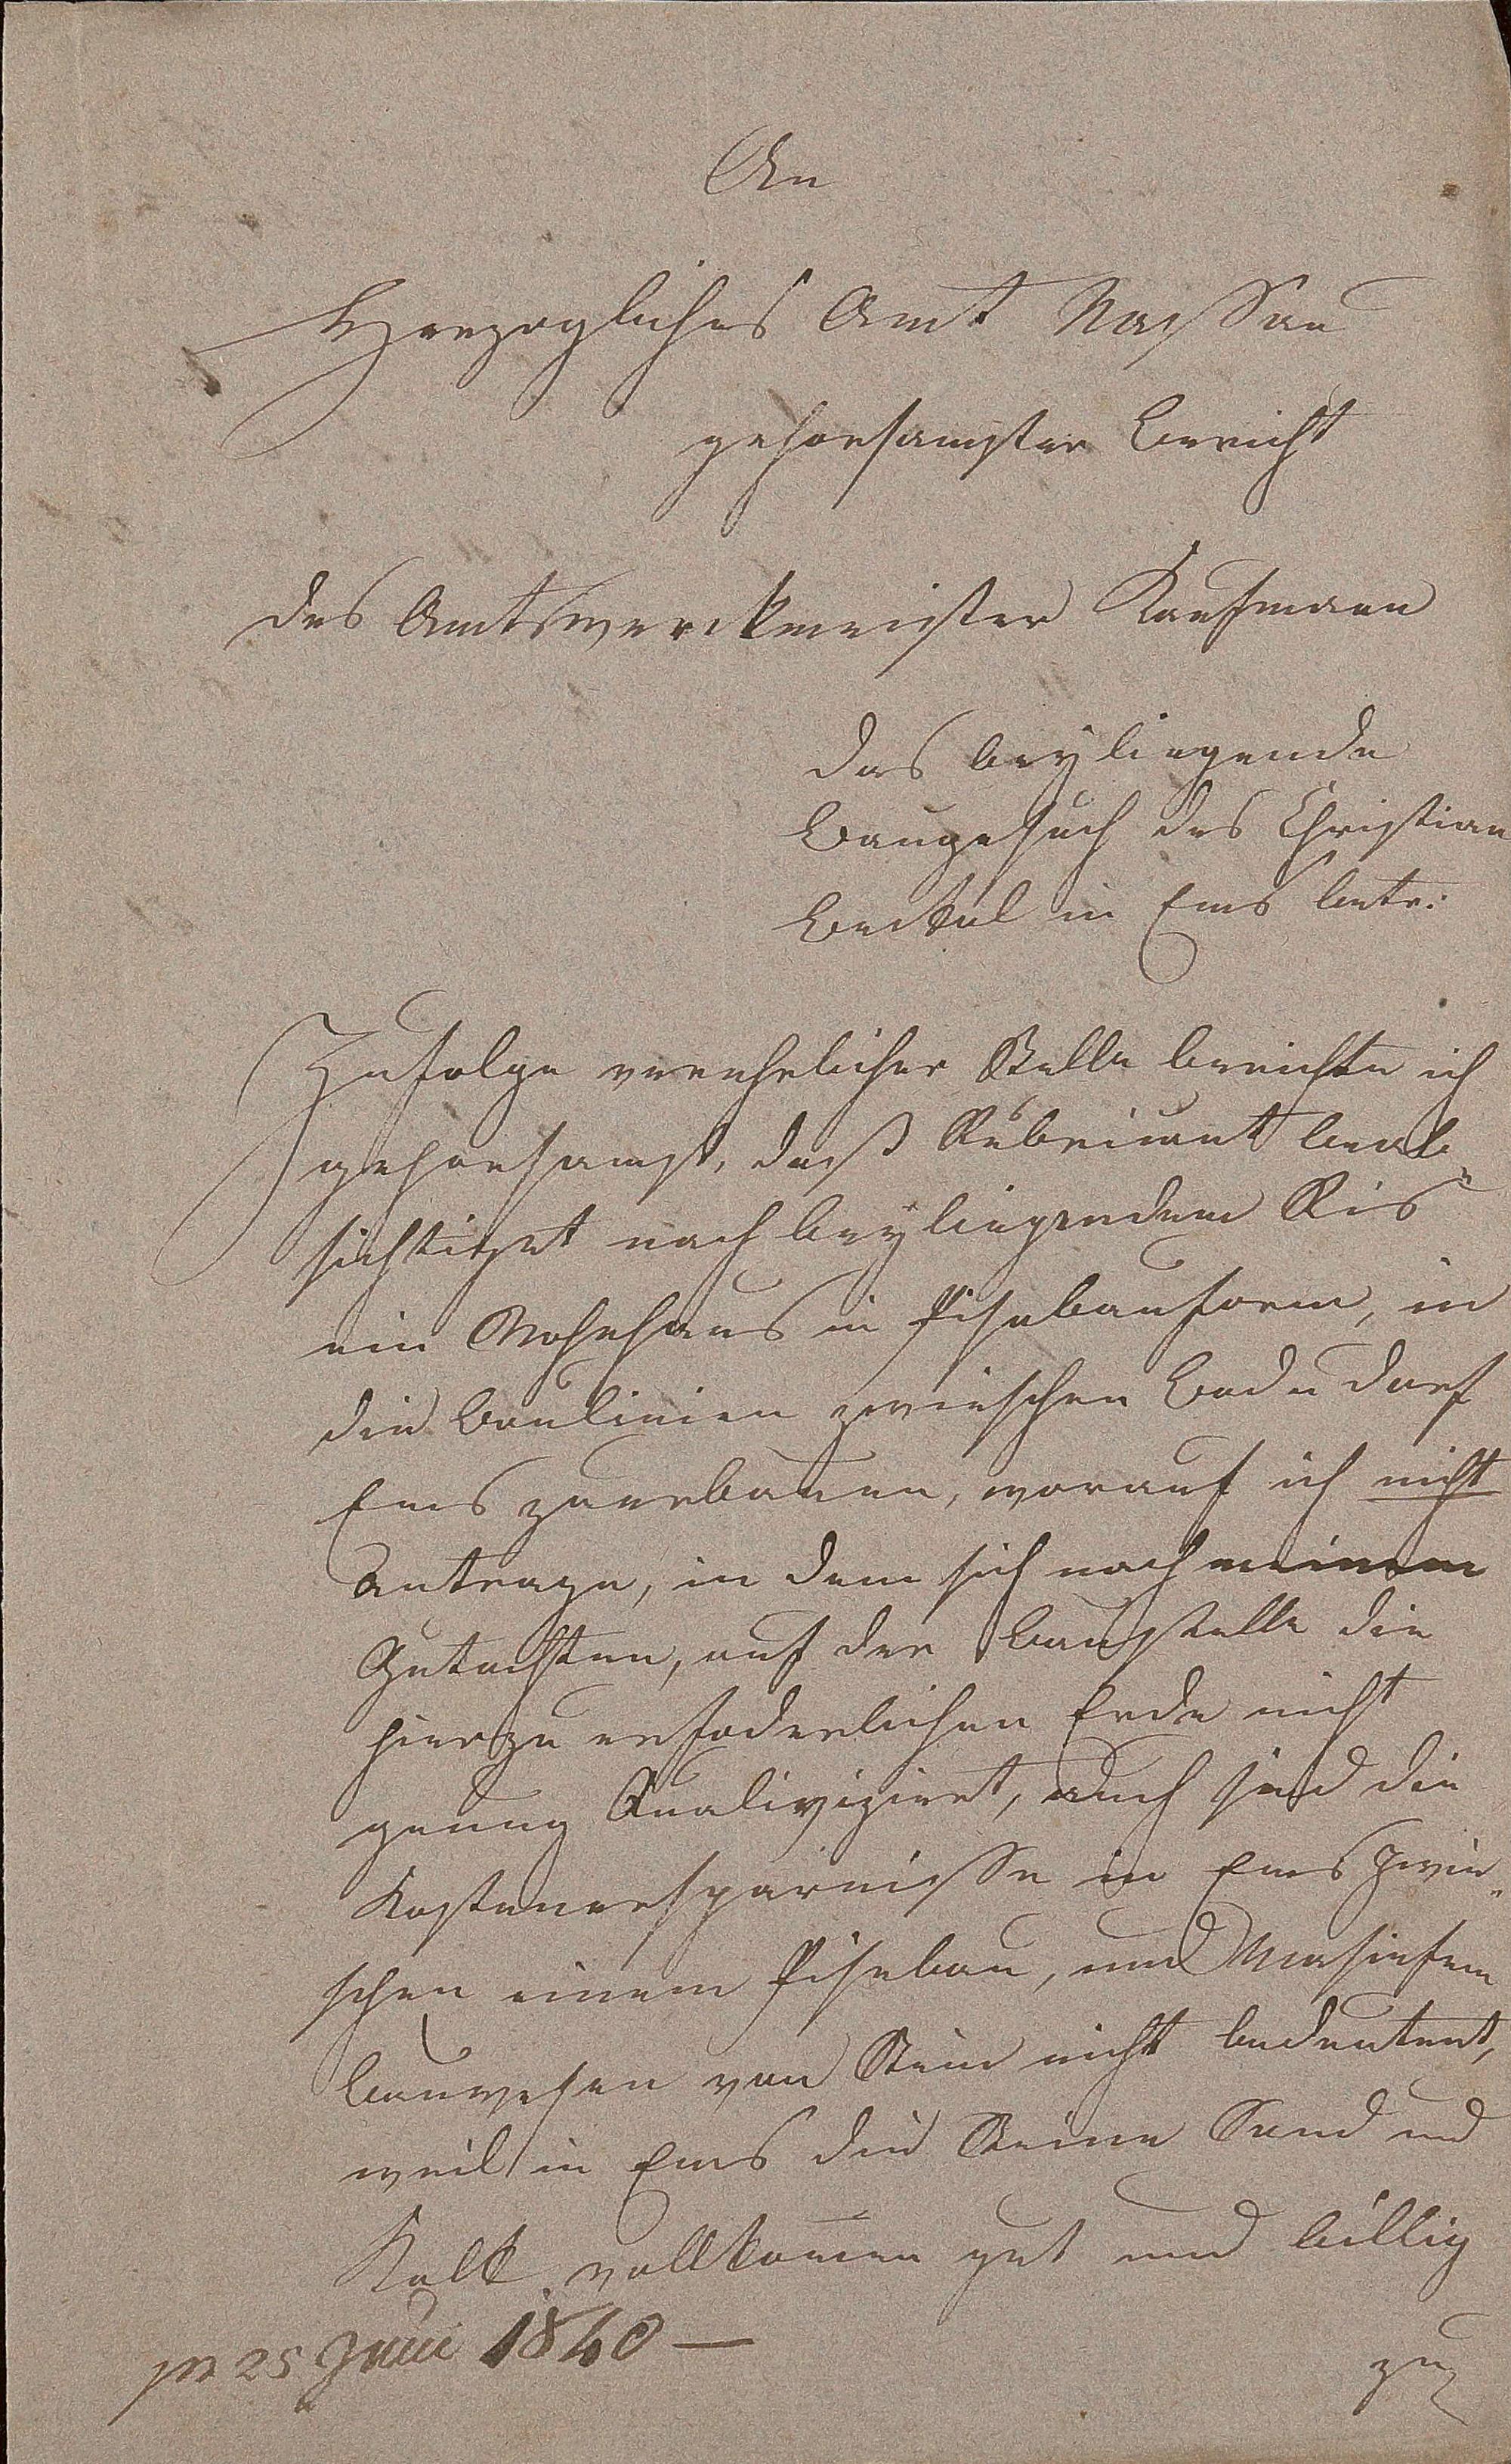 An
Herzogliches Amt Nassau
gehorsamster Bericht
des Amtswerckmeister Kaufmann
das beyliegende
Baugesuch des Christian
Beckel in Ems betr:
Zufolge verehrlicher Stelle berichte ich
gehorsamst, daß Rubricant beab„
sichtiget nach beyliegendem Ris
ein Wohnhaus in Pisebauform, in
die Baulinien zwischen Bad u Dorf
Ems zuerbauen, worauf ich nicht
Antrage, in dem sich nach meinem
Gutachten, auf der Baustelle die
hierzu erfoderlichen Erde nicht
genug Qualiviziret, auch sind die
Kostenersparnisse in Ems zwi„
schen einem Pisebau, und Masiefem
Bauwesen von Stein nicht bedeutent,
weil in Ems die Steine Sand und
Kalk vollkomen gut und billig
pr 25 Juni 1840 —
zu